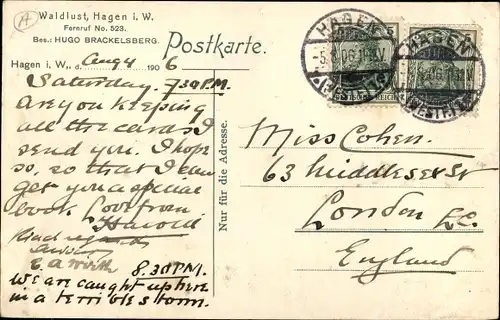 Waldlust, Hagen i. W.
Fernruf No. 523.
Bes.: HUGO BRACKELSBERG.
Postkarte.
Hagen i. W., d. Aug 4 190 6
Saturday. 7.30 P.M.
Are you keeping
all the cards I
send you. I hope
so, so that I can
get you a special
book. Love from
Harold
Kind regards
C. A. Wirth
8.30 P.M.
We are caught up here
in a terrible storm.
Nur für die Adresse.
HAGEN
(WESTF.)
HAGEN
(WESTF.)
Miss Cohen.
63 Middlesex St
London E.C.
England